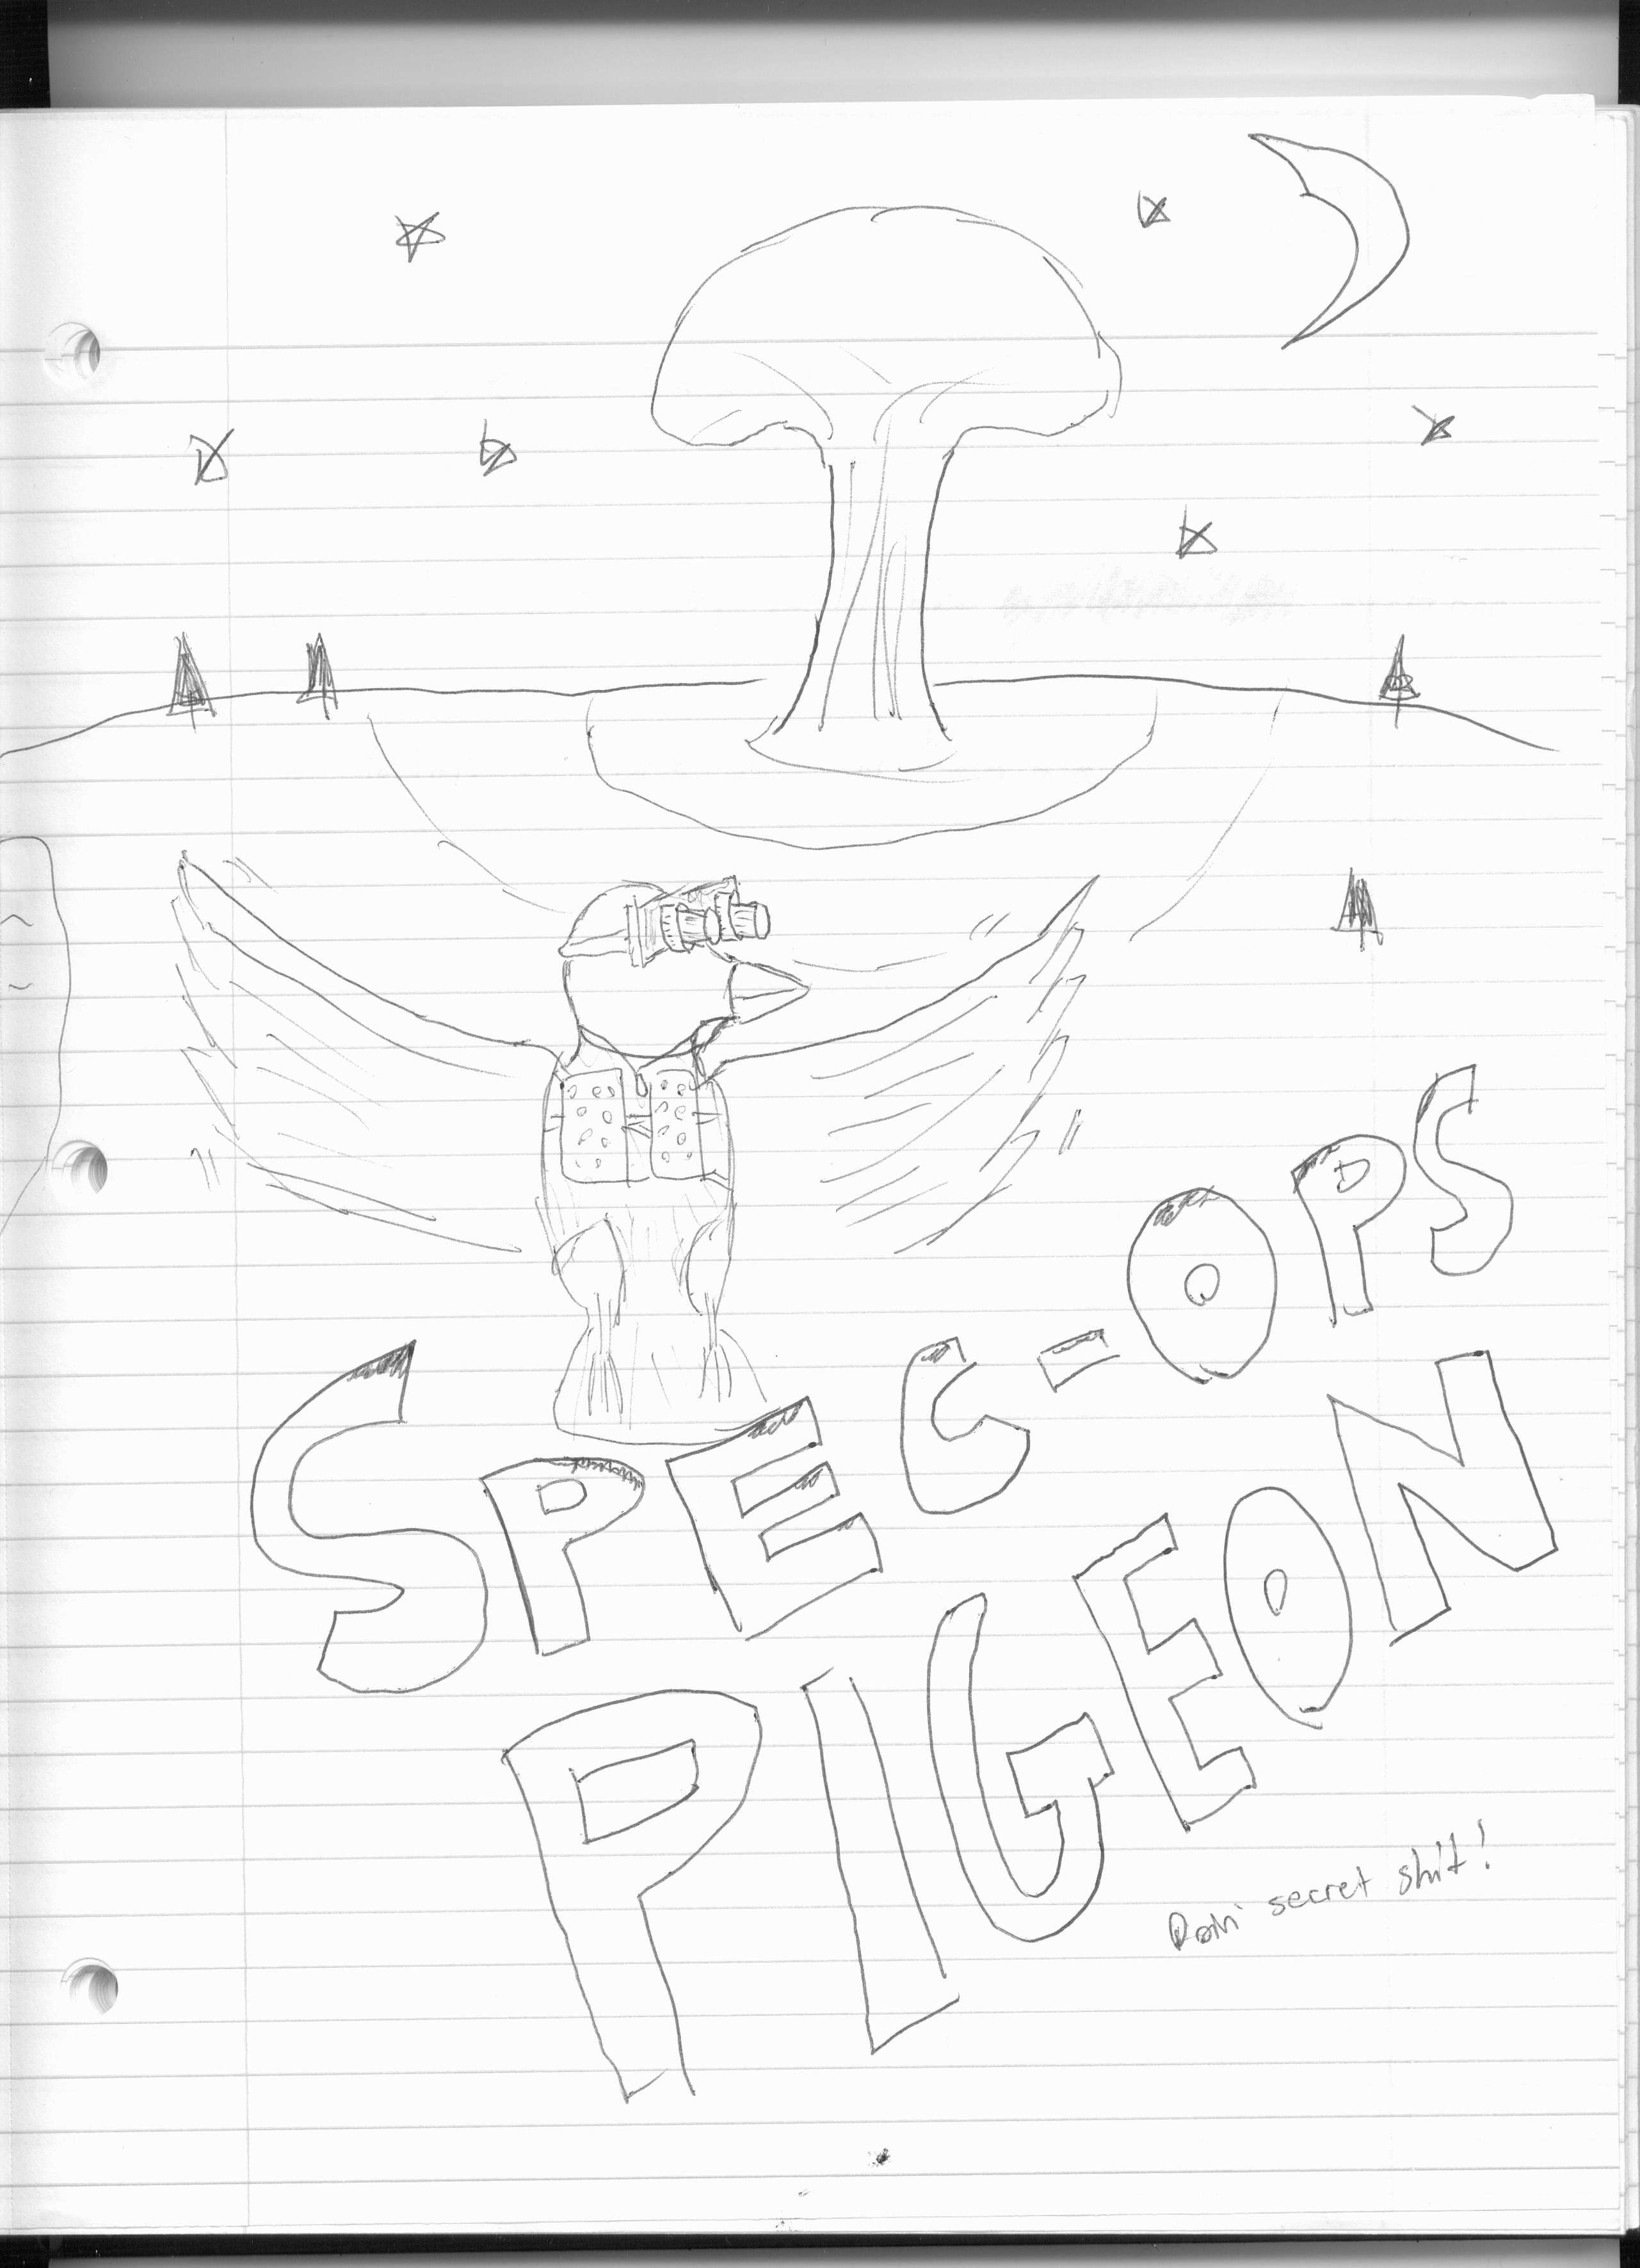 SPEC-OPS
PIGEON
secret shit!